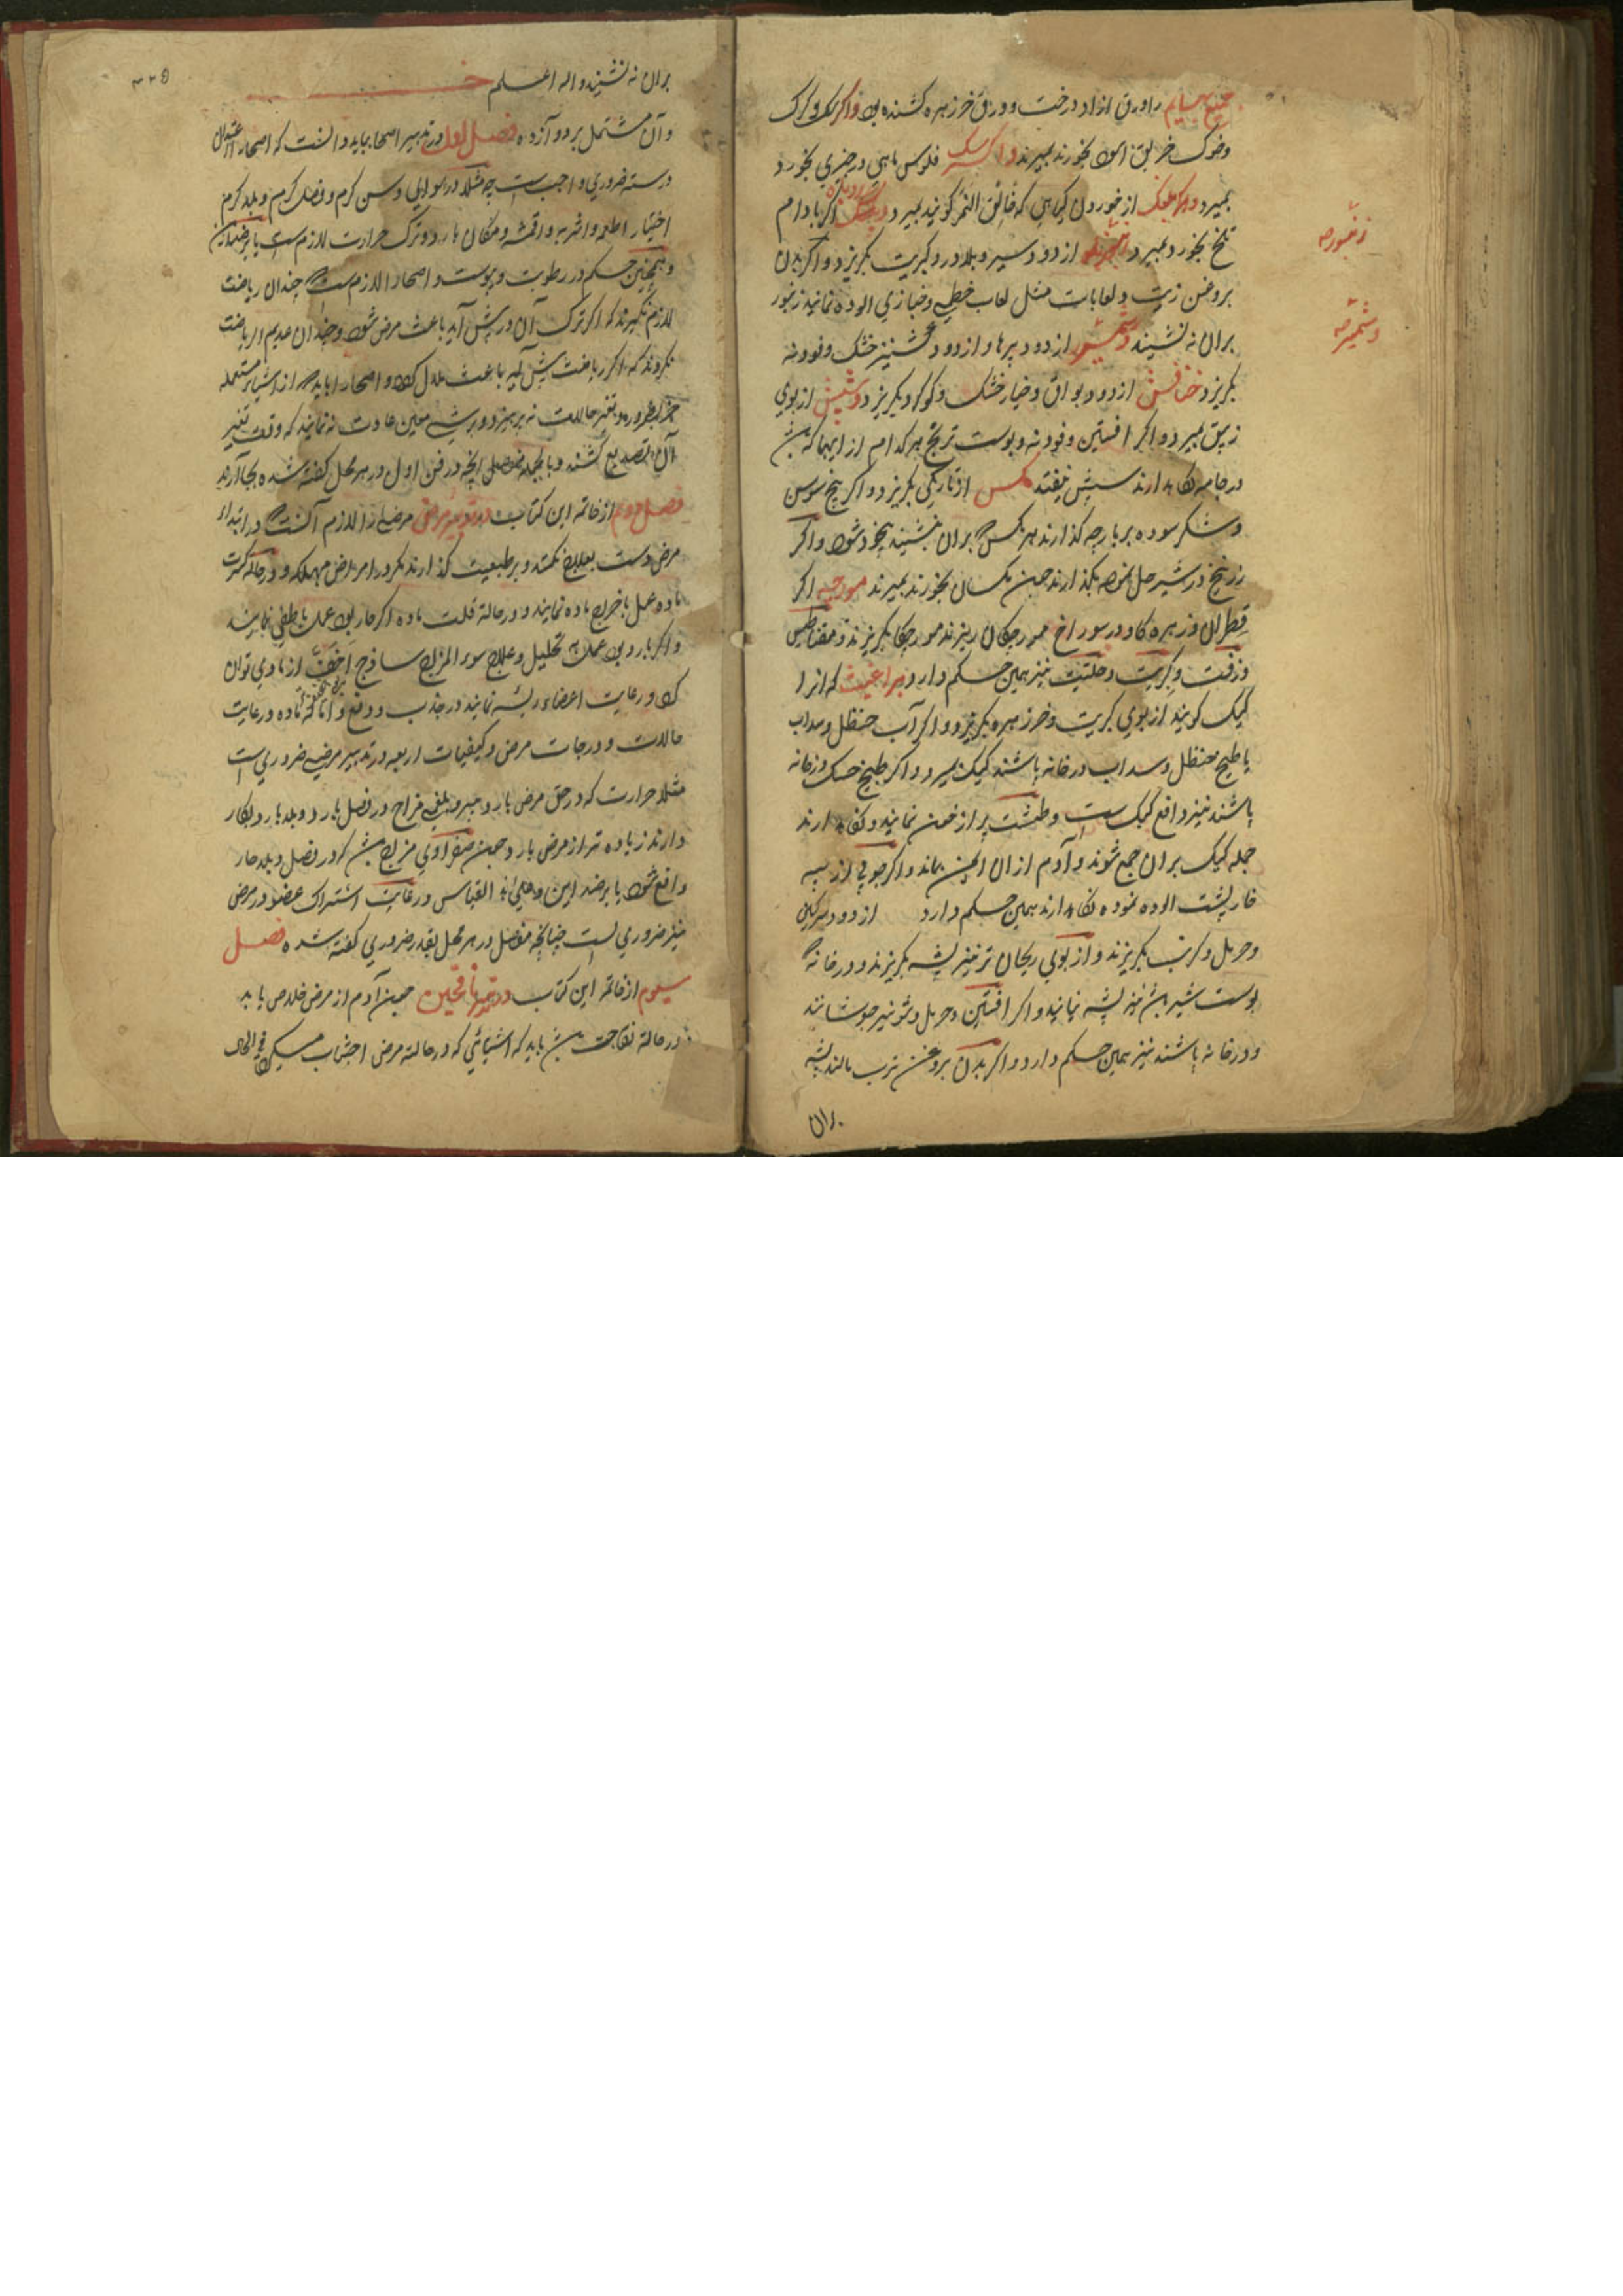 جمیع بهایم را ورق ازاد درخت و ورق خرزهره کشنده بود واکر کرک
وخوک خربق اسود بخورند بمیرند واکر سک فلوس ماهی در چیزی بخورد
بمیرد و از خوردن کیاهی که خانق النمر کویند بمیرد اکر بادام
تلخ بخورد بمیرد از دود سیر و بلادر و کبریت بکریزد و اکر بدن
بروغن زیت و لعابات مثل لعاب خطمی و خبازی الوده نمایند زنبور
بران نه نشیند از دود پرها و از دود کشنیز خشک و فودنه
بکریزد خنافس از دود و بوی خیار خشک و کوکرد بکریزد و شپش از بوی
زیبق بمیرد و اکر افسنتین و فودنه و پوست ترنج هرکدام از اینها که بش
در جامه نکاه دارند سپش نیفتد مکس از تاریکی بکریزد و اکر بنج سوسن
و شکر سوده بر پارچه کذارند هر مکس که بران نشیند بیخود شود و اکر
زرنیخ در شیر حل نموده بکذارند چون مکسان بخورند بمیرند مورچه اکر
قطران و زهره کاو در سوراخ مورچکان ریزند مورچکان بکریزند و مقناطیس
و زفت و کبریت و حلتیت نیز همین حکم دارد براغیث که انرا
کیک کویند از بوی کبریت و خرزهره بکریزد و اکر آب حنظل و سداب
یا طبیخ حنظل و سداب در خانه پاشند کیک بمیرد و اکر طبیخ خسک در خانه
پاشند نیز دافع کیک است و طشت پر از خون نمایند و نکاه دارند
جمله کیک بران جمع شوند و آدم از ان ایمن بماند و اکر چوبی از پیه
خارپشت الوده نموده نکاه دارند همین حکم دارد از دود سرکین
و حرمل و کرنب بکریزند و از بوی ریحان تر نیز پشه بکریزند و در خانه که
پوست شیر بش نیز پشه نیاید و اکر افسنتین و حرمل و شونیز جوشانند
و در خانه پاشند نیز همین حکم دارد و اکر بدن بروغن ترب مالند پشه
بران
زنبوره
۳۲۵
بران نه نشیند والله اعلم
و آن مشتمل بر دوآزده فصل اول در تدبیر اصحا بباید دانست که اصحا را اعتدال
در سته ضروری واجب است چه مثلا در هوای و سن کرم و فصل کرم و بلد کرم
اختیار اطعمه و اشربه و اقمشه و مکان بارد و ترک حرارت لازم است یا برضد ان
و همچنین حکم در رطوبت و یبوست و اصحا را لازم است که چندان ریاضت
لازم نکیرند که اکر ترک آن در پیش آید باعث مرض شود و چندان عدیم الریاضت
نکردند که اکر ریاضت پیش آید باعث ملال کردد و اصحا را باید که از اشیاء مستعمله
جز بضرورت و تغیر حالات نه پرهیزند و بر شی معین عادت نه نمایند که وقت تغیر
آن تصدیع کشند و بالجمله مفصلی آنچه در فن اول در هر محل کفته شده بجا آرند
فصل دوم از خاتمه این کتاب در تدبیر مرضی مرضا را لازم آنست که در ابتداء
مرض دست بعلاج نکنند و بر طبیعت کذارند مکر در امراض مهلکه و در حالة کثرت
ماده عمل باخراج ماده نمایند و در حالة قلت ماده اکر حار بود عمل باطفی نمایند
و اکر بارد بود عمل به تحلیل و علاج سوء المزاج ساذج اخف از مادی توان
کرد و رعایت اعضاء رئیسه نمایند در جذب و دفع و اماله ماده و رعایت
حالات و درجات مرض و کیفیات اربعه در تدبیر مرضی ضروری است
مثلا حرارت که در حق مرض بارد و پیر و بلغمی مزاج در فصل بارد و بلد بارد بکار
دارند زیاده تر از مرض بارد چون صفراوی مزاج بش که در فصل و بلد حار
واقع شود یا برضد این و علی هذا القیاس و رعایت اشتراک عضو در مرض
نیز ضروری است چنانچه مفصل در هر محل بقدر ضروری کفته شده فصل
سیوم از خاتمه این کتاب در تدبیر ناقهین چون آدم از مرض خلاص یابد
در حالة نقاهت بش باید که اشیائی که در حالت مرض اجتناب میکرد فی الحال